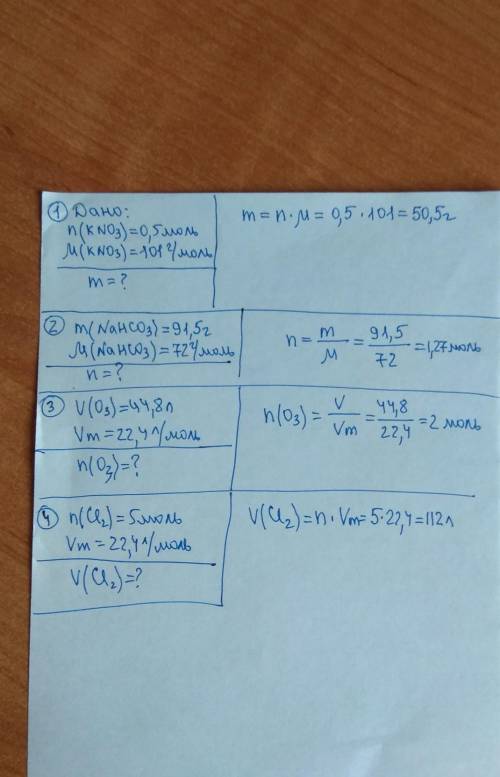 ① Дано:
n(KNO₃)=0,5моль
M(KNO₃)=101г/моль
m=?
m=n·M=0,5·101=50,5г
② m(NaHCO₃)=91,5г
M(NaHCO₃)=72г/моль
n=?
n=m/M=91,5/72=1,27моль
③ V(O₃)=44,8л
Vm=22,4л/моль
n(O₃)=?
n(O₃)=V/Vm=44,8/22,4=2 моль
④ n(Cl₂)=5моль
Vm=22,4л/моль
V(Cl₂)=?
V(Cl₂)=n·Vm=5·22,4=112л